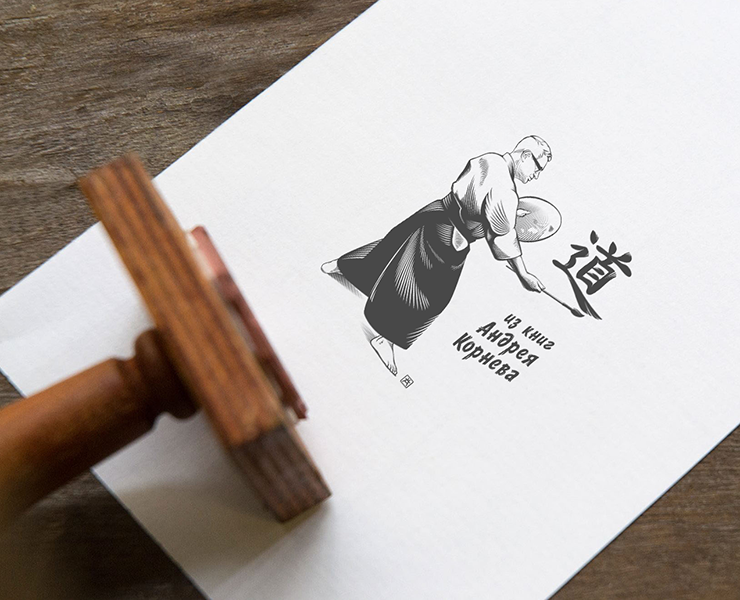 道
из книг
Андрея
Корнева